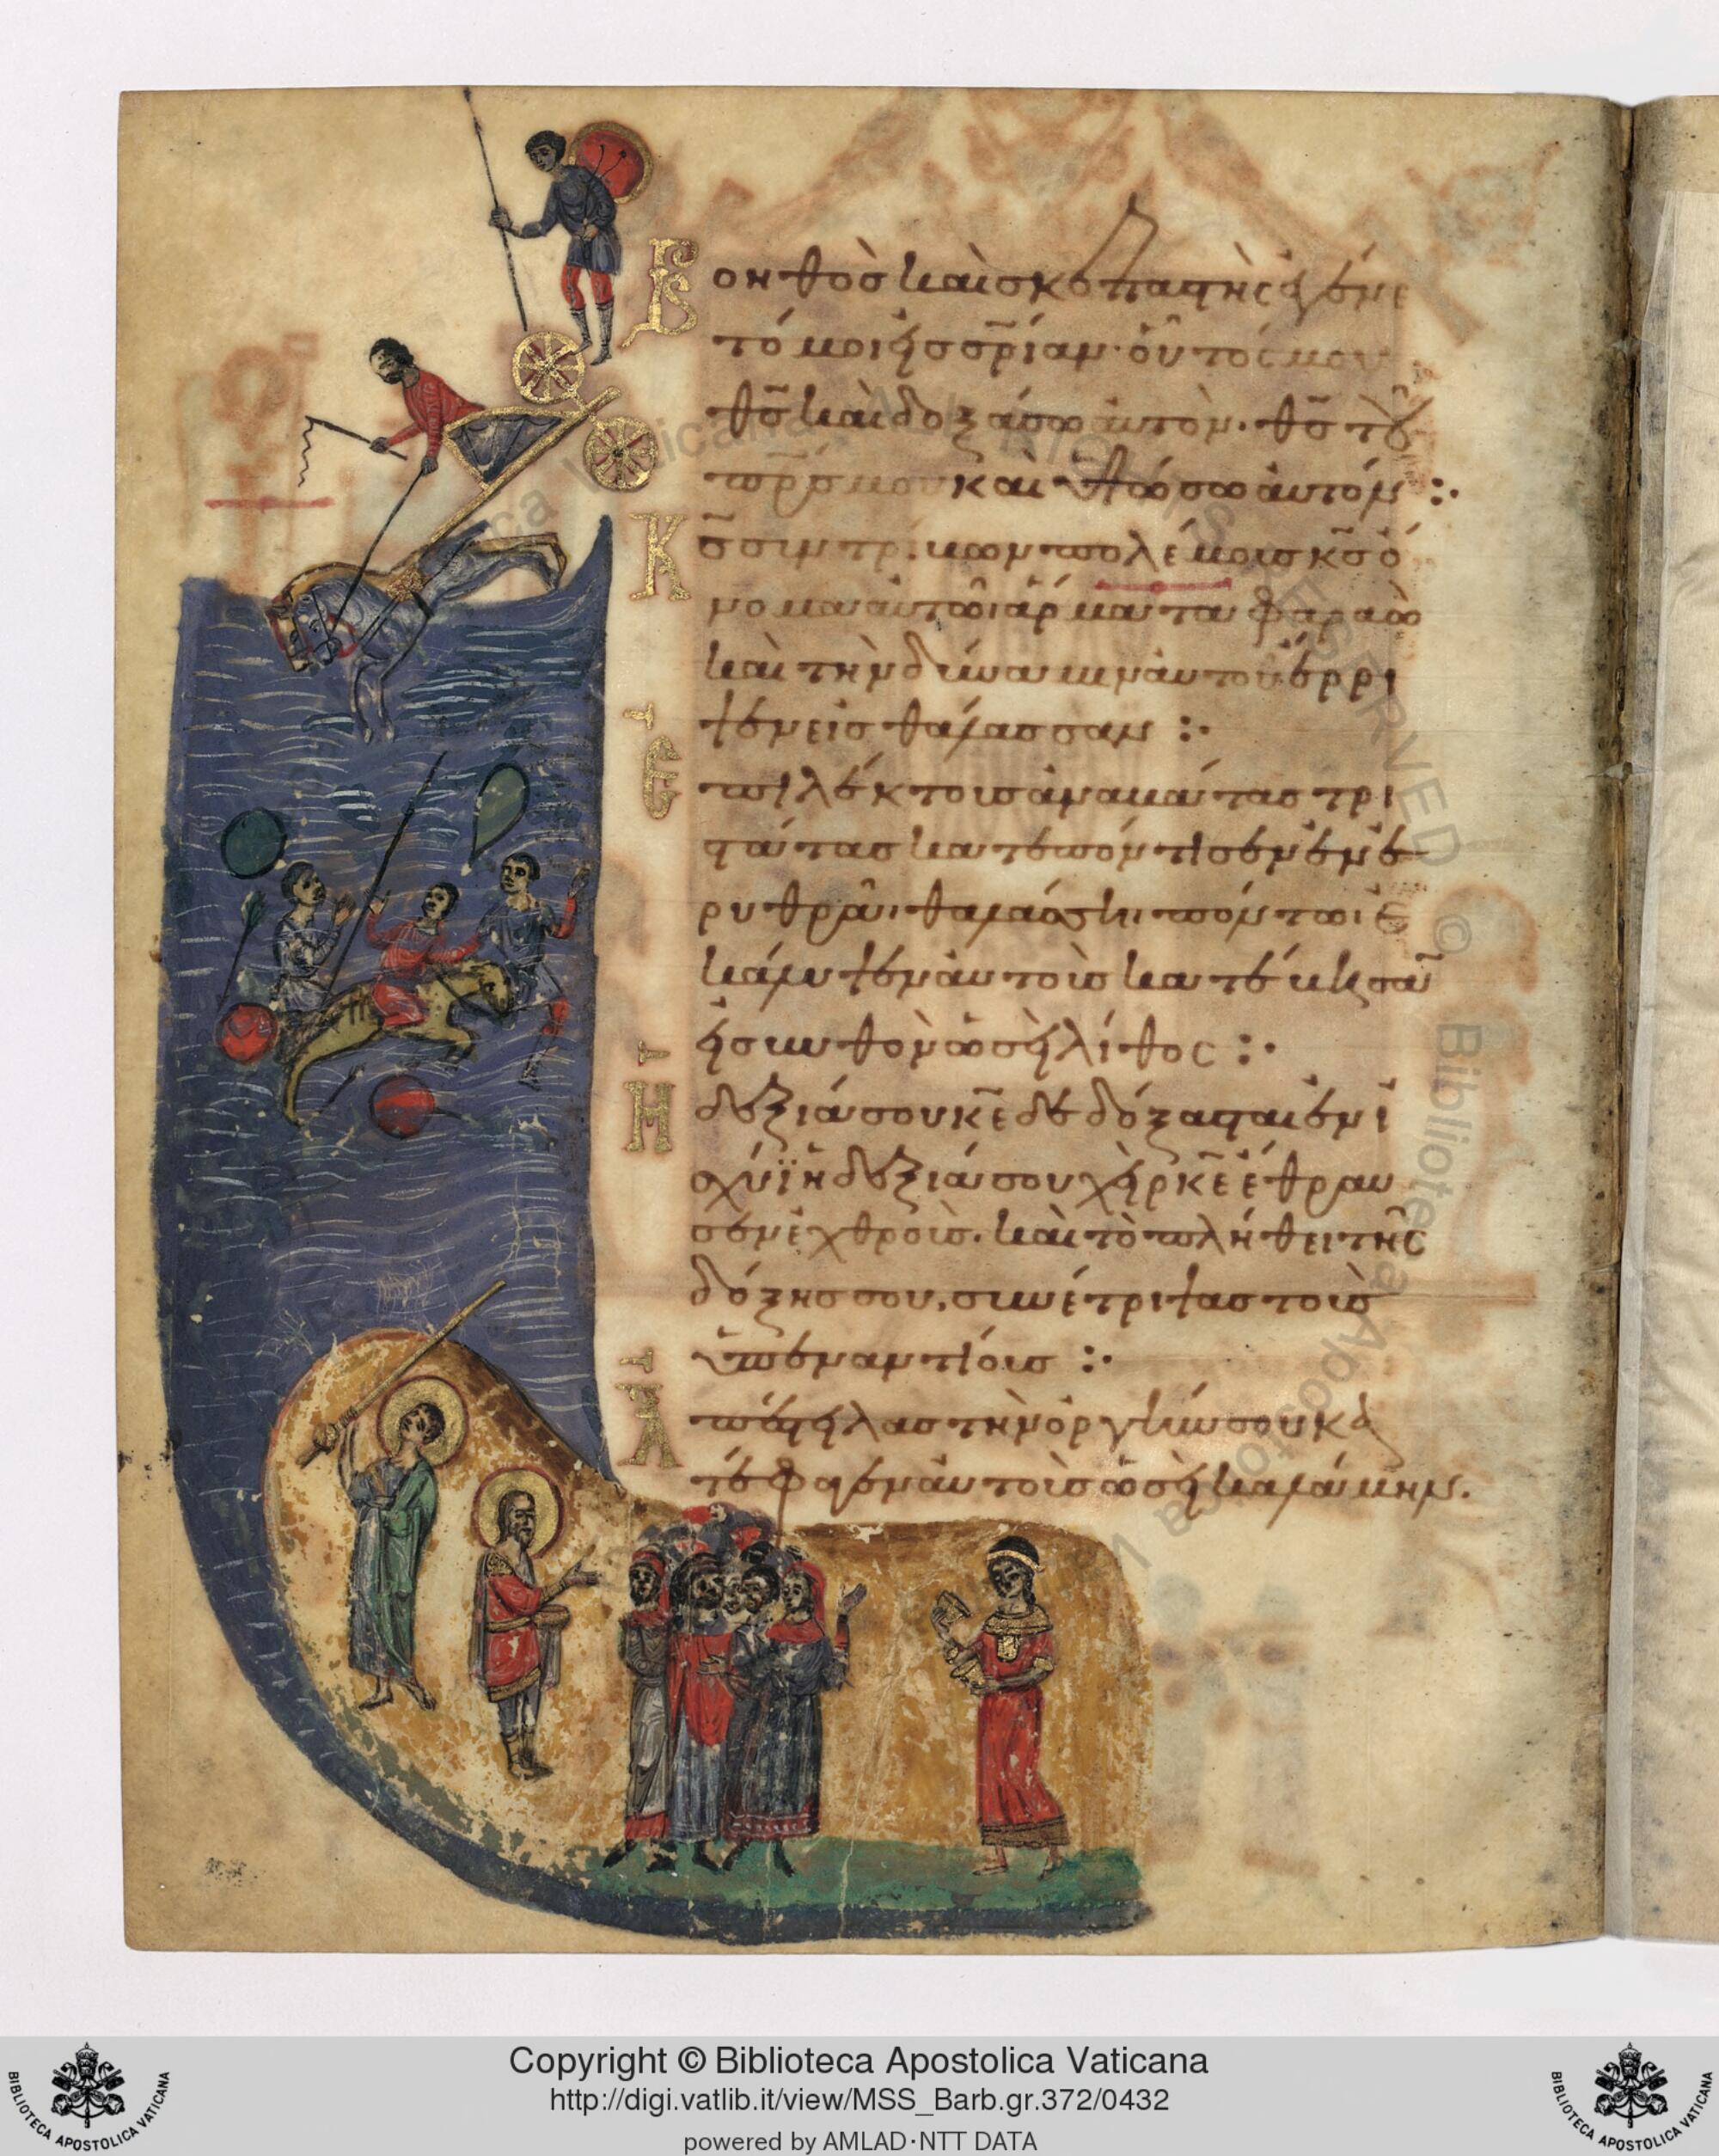 Βοηθὸς καὶ σκεπαστὴς ἐγένε
το μοι εἰς σρίαν· οὗτός μου
θς καὶ δοξάσω αὐτόν· θς τοῦ
πρς μου καὶ ὑψώσω αὐτόν :·
Κς συντρίβων πολέμους κς ὄ
νομα αὐτῶι ἅρματα φαραὼ
καὶ τὴν δύναμιν αὐτοῦ ἔρρι
ψεν εἰς θάλασσαν :·
Ἐπιλέκτους ἀναβάτας τρι
στάτας κατεπόντισεν ἐν ἐ
ρυθρᾶι θαλάσσηι πόντωι ἐ
κάλυψεν αὐτοὺς κατέδυσαν
εἰς βυθὸν ὡσεὶ λίθος :·
Ἡ δεξιά σου κε δεδόξασται ἐν ἰ
σχύϊ ἡ δεξιά σου χεὶρ κε ἔθραυ
σεν ἐχθρούς· καὶ τὸ πλήθει τῆς
δόξης σου, συνέτριψας τοὺς
ὑπεναντίους :·
Ἀπέστειλας τὴν ὀργήν σου κα
τέφαγεν αὐτοὺς ὡσεὶ καλάμην.
RESERVED © Biblioteca Apostolica Vaticana
Copyright © Biblioteca Apostolica Vaticana
http://digi.vatlib.it/view/MSS_Barb.gr.372/0432
powered by AMLAD·NTT DATA
BIBLIOTECA APOSTOLICA VATICANA
BIBLIOTECA APOSTOLICA VATICANA